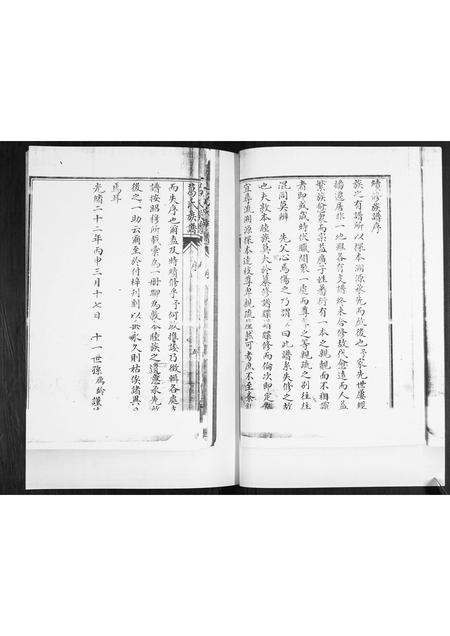 續修族譜序
族之有譜所以探本溯源承先而啟後也予家先世屢經
播遷居非一地雖各有支譜終未合修故代愈遠而人益
繁族愈衆而宗益廣子姓蕃衍有一本之親覿面不相識
者即或歲時伏臘閒聚一處而尊卑之等親疏之別往往
混同莫辨 先父心焉傷之乃謂 曰此譜系失修之故
也夫敦本睦族莫大於纂修譜牒譜牒修而倫次即定
宜尋流溯源探本達枝尊卑親疏 然可考庶不至紊
葛氏族譜 序
而失序也爾盍及時續修 予何 以 諉乃徵輯各處支
譜按照稽所載彙為一册聊為敦本睦族之 意承先啟
後之一助云爾至於付梓刊刻以垂永久則姑俟諸異日
焉耳
光緒二十二年丙申三月十七日 十一世孫 齡謹